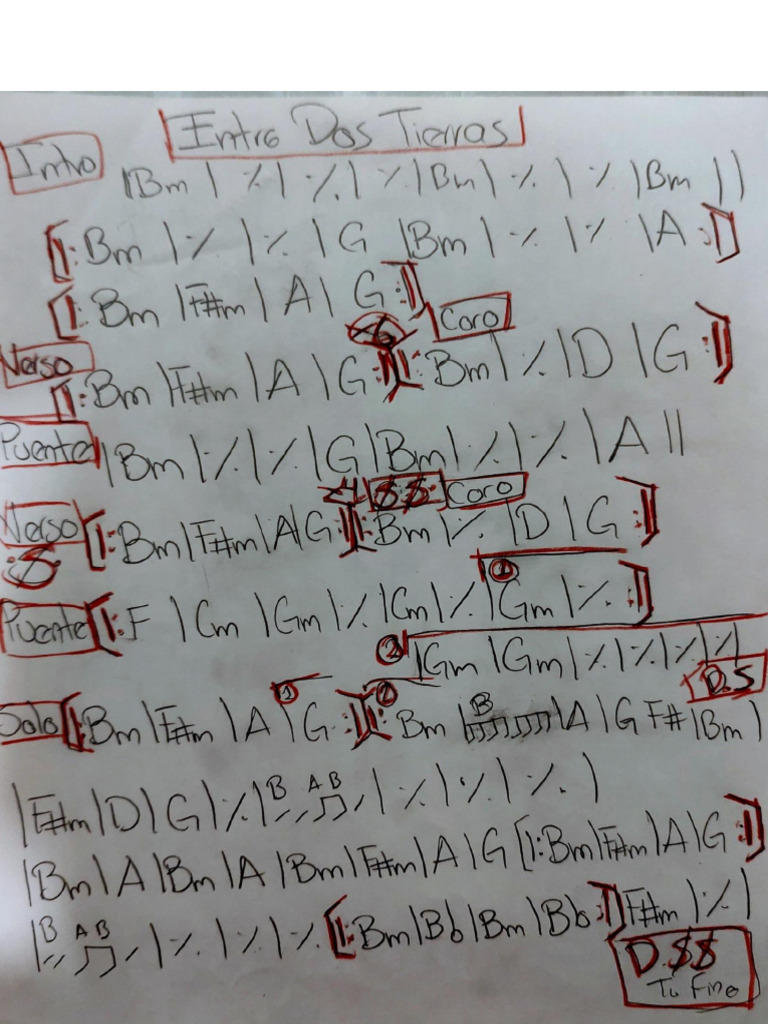 Entre Dos Tierras
Intro
|Bm | ٪ | ٪. | ٪ |Bm | ٪. | ٪ |Bm ||
[|: Bm | ٪. | ٪. | G |Bm | ٪. | ٪ | A :|]
[|: Bm |F#m | A | G :|]
Coro
Verso [|: Bm |F#m | A | G :|] [|: Bm | ٪. | D | G :|]
Puente |Bm | ٪. | ٪. | G |Bm | ٪. | ٪. | A ||
$$ Coro
Verso $ [|: Bm |F#m | A | G :|] [|: Bm | ٪. | D | G :|]
Puente [|: F | Cm | Gm | ٪. | Cm | ٪. | ① Gm | ٪. :|]
② |Gm | Gm | ٪. | ٪. | ٪. | ٪ |
D.S
Solo [|: Bm |F#m | A | ① G :|] [|: ② Bm | B | A | G F# |Bm |
|F#m | D | G | ٪. | B A B | ٪. | ٪. | ٪. |
|Bm | A |Bm | A |Bm |F#m | A | G [|: Bm |F#m | A | G :|]
|B A B | ٪. | ٪. | ٪. [|: Bm |Bb |Bm |Bb :|] F#m | ٪. |
D.$$
To Fine